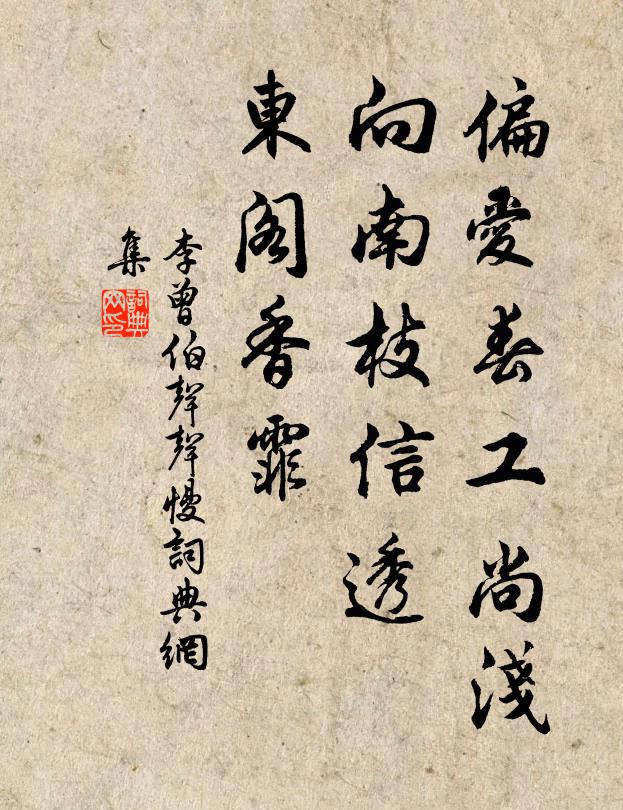 偏愛春工尚淺
向南枝信透
東閣香霏
李曾伯聲聲慢詞典網
集
詞典
网印